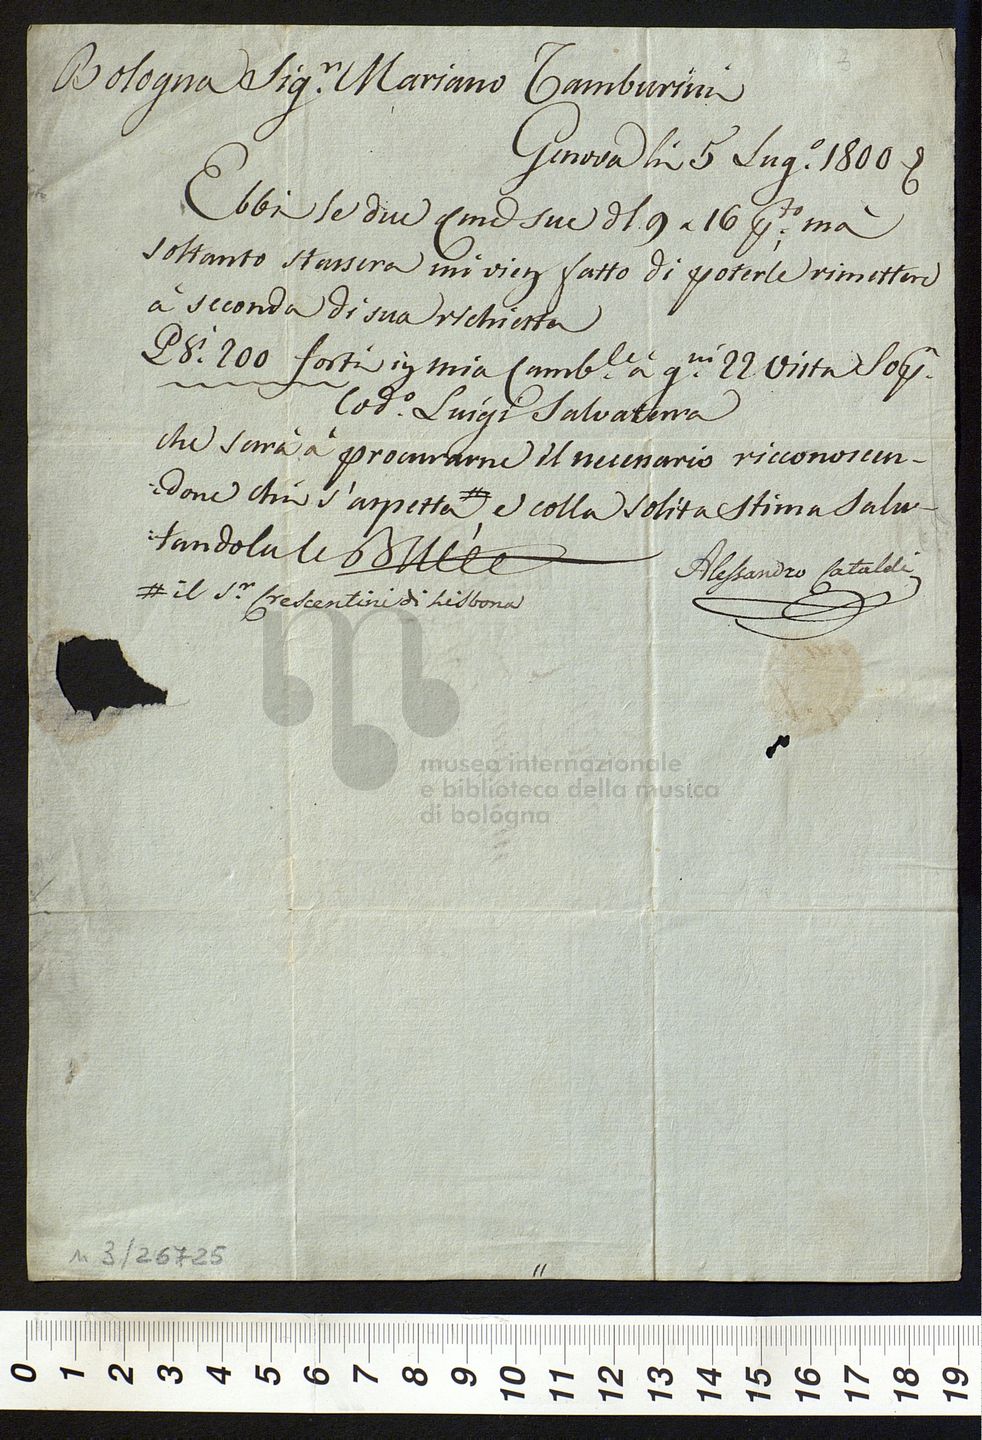 Bologna Sig.r Mariano Tamburini
Genova li 5 Lug.o 1800
Ebbi le due sue dl 9 a 16 p.to mà
soltanto stassera mi vien fatto di poterle rimettere
à seconda di sua richiesta
P8.i 200 forti in mia Camb.le à g.ni 22 vista Sop.a
Cod.o Luigi Salvaterra
che sarà à procurarne il necessario ricconoscen-
:done chi s'aspetta # e colla solita stima salu-
:tandola le
Alessandro Cataldi
# il S.r Crescentini di Lisbona
museo internazionale
e biblioteca della musica
di bologna
n 3/26725
3
0 1 2 3 4 5 6 7 8 9 10 11 12 13 14 15 16 17 18 19